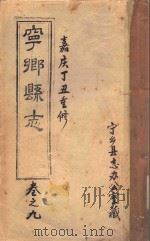 嘉庆丁丑重修
寧鄉縣志
卷之九
宁乡县志办公室藏